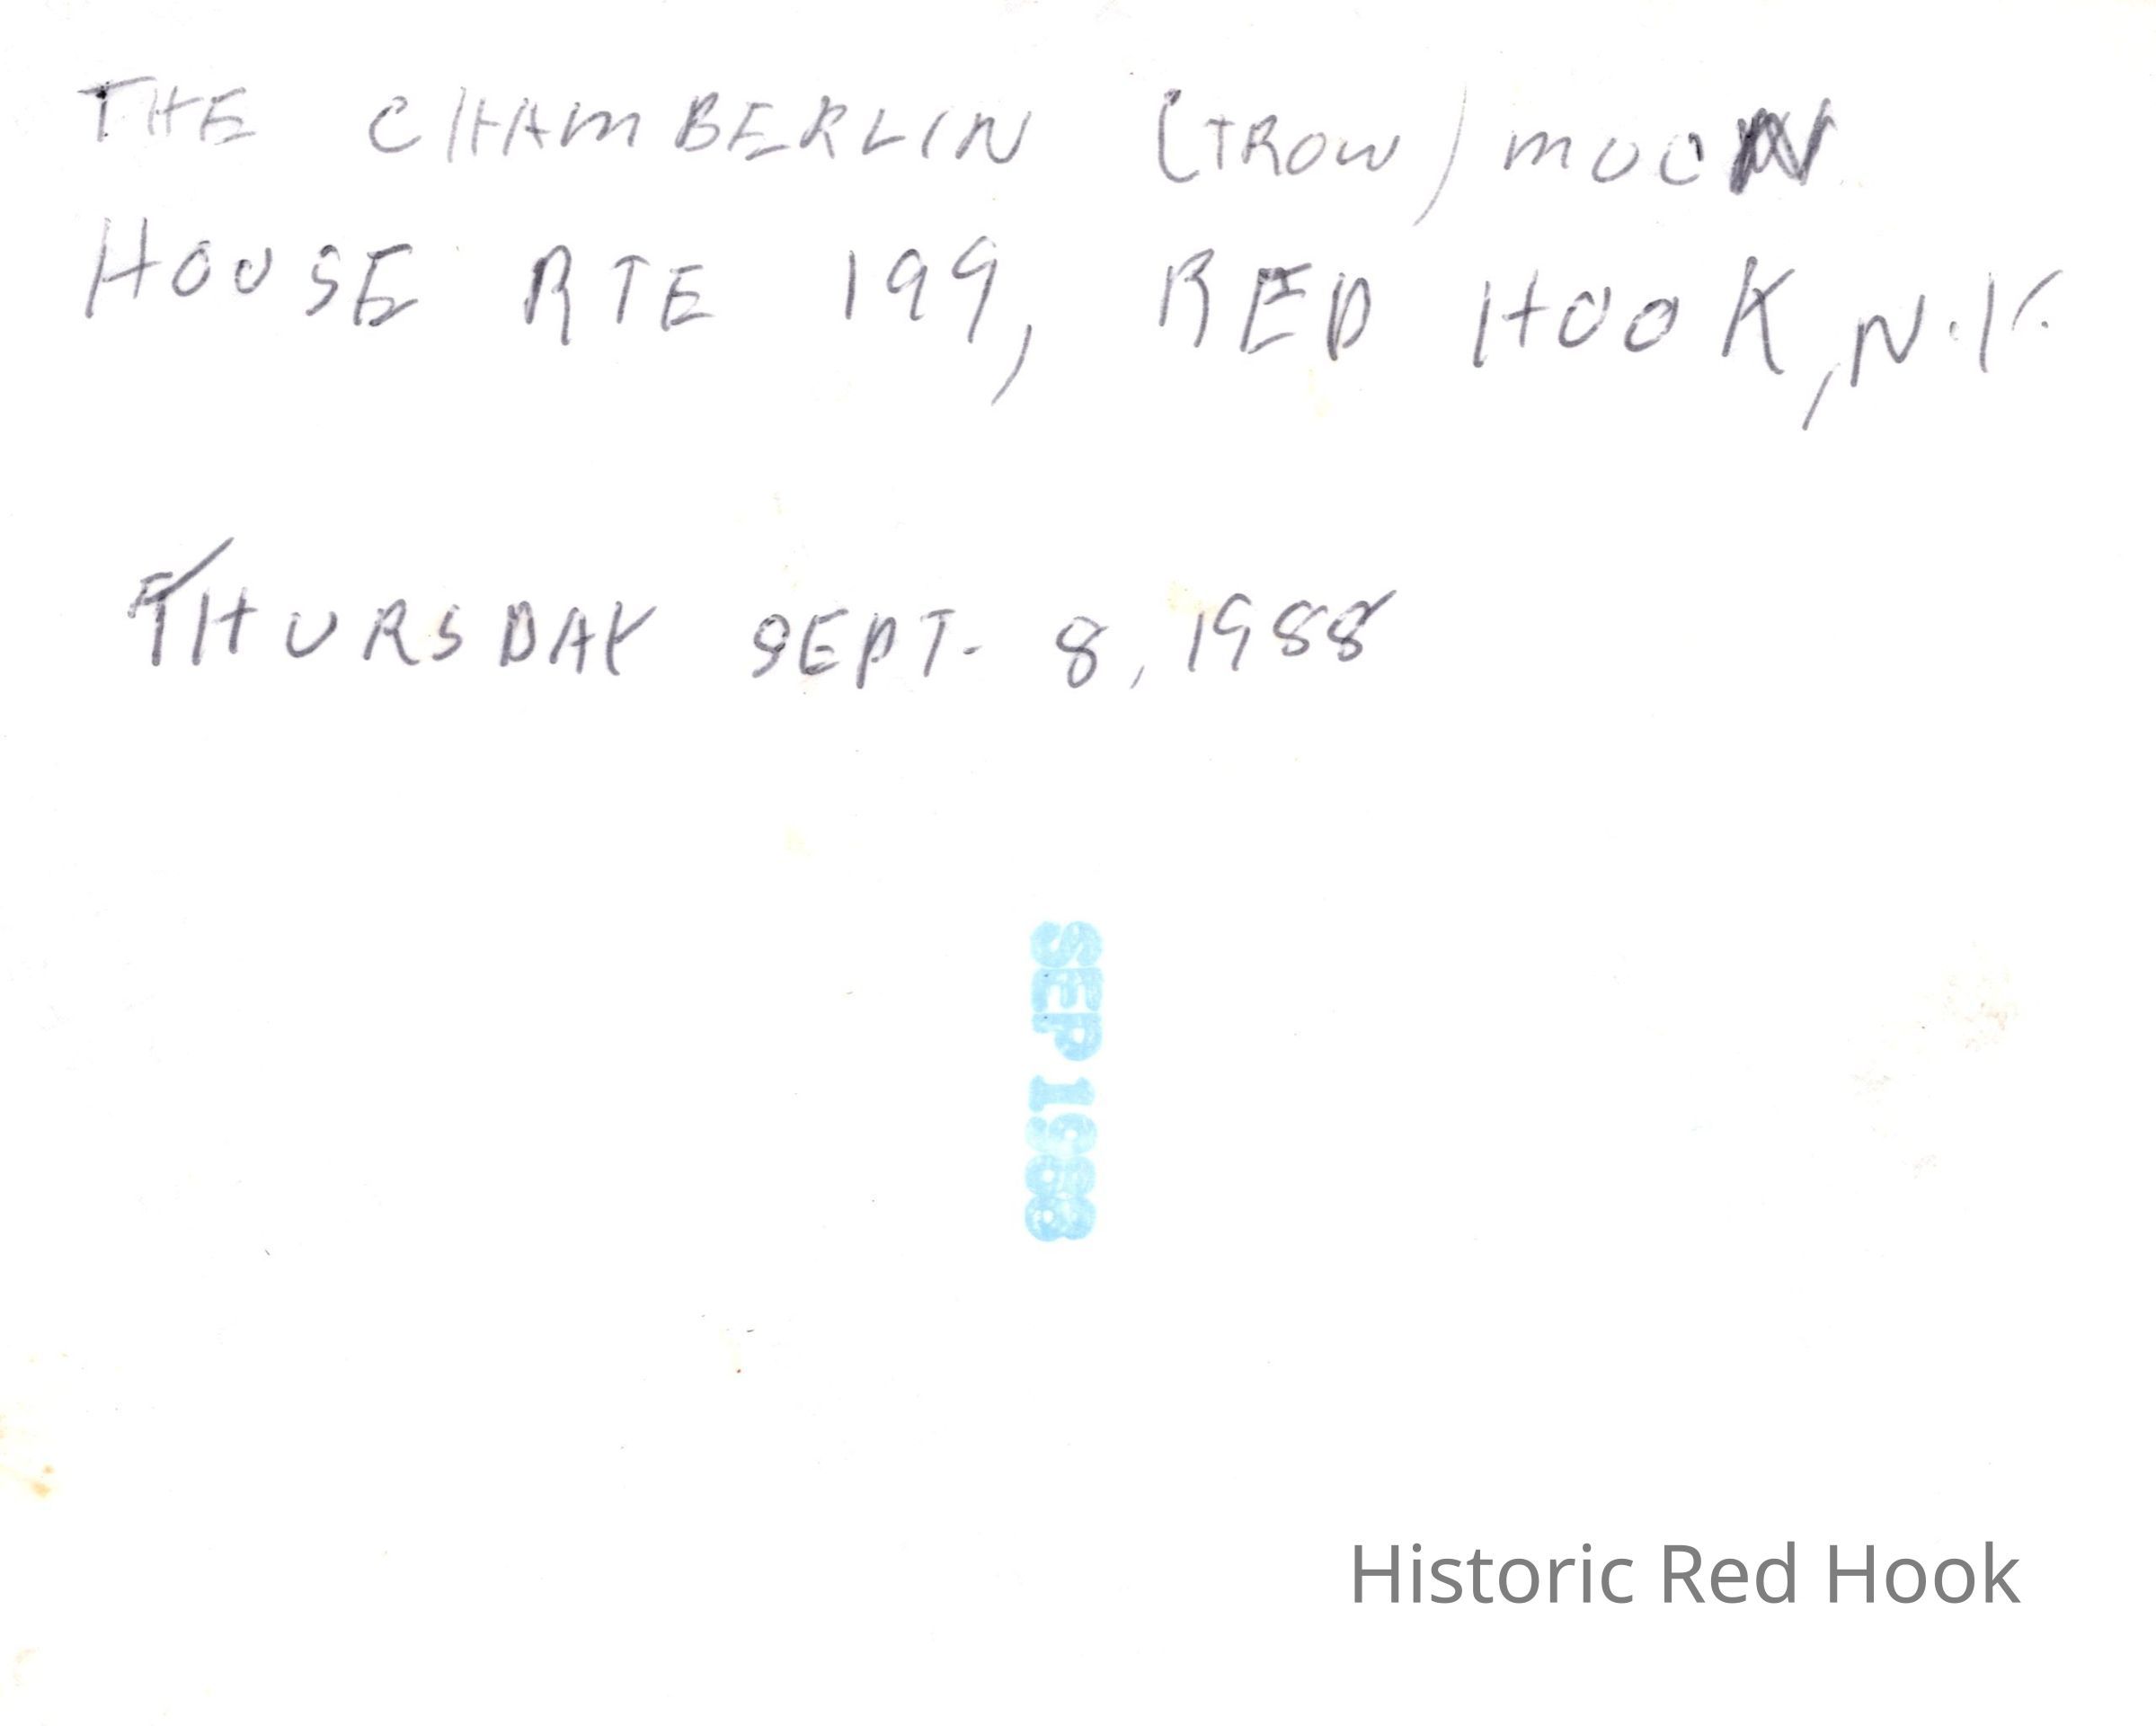 THE CHAMBERLIN (TROW) MOON
HOUSE RTE 199, RED HOOK, N.Y.
THURSDAY SEPT. 8, 1988
SEP 1988
Historic Red Hook